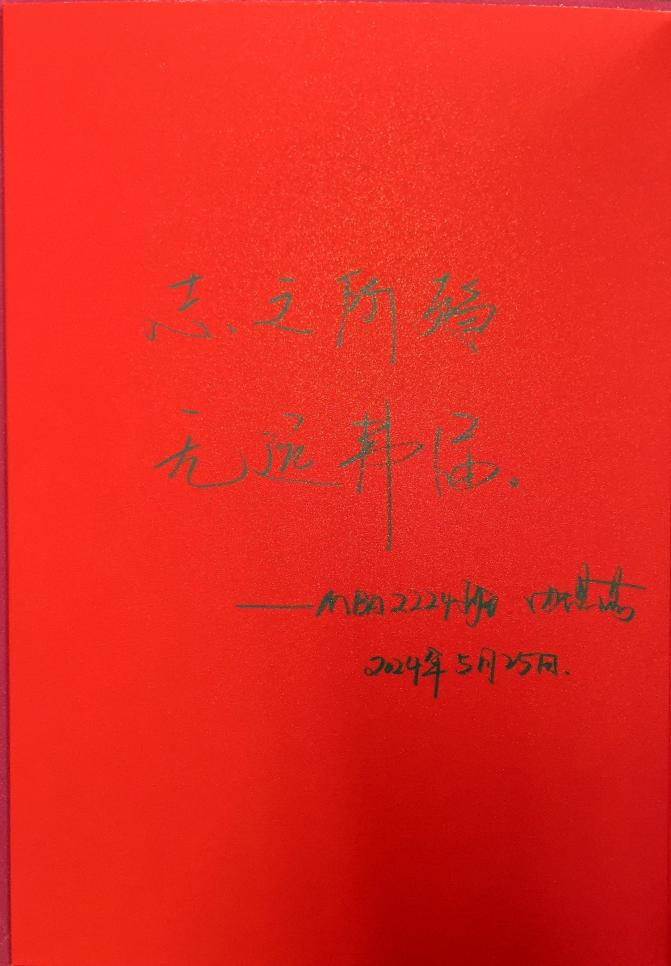 志之所趋
无远弗届.
——MBA2224班
2024年5月25日.